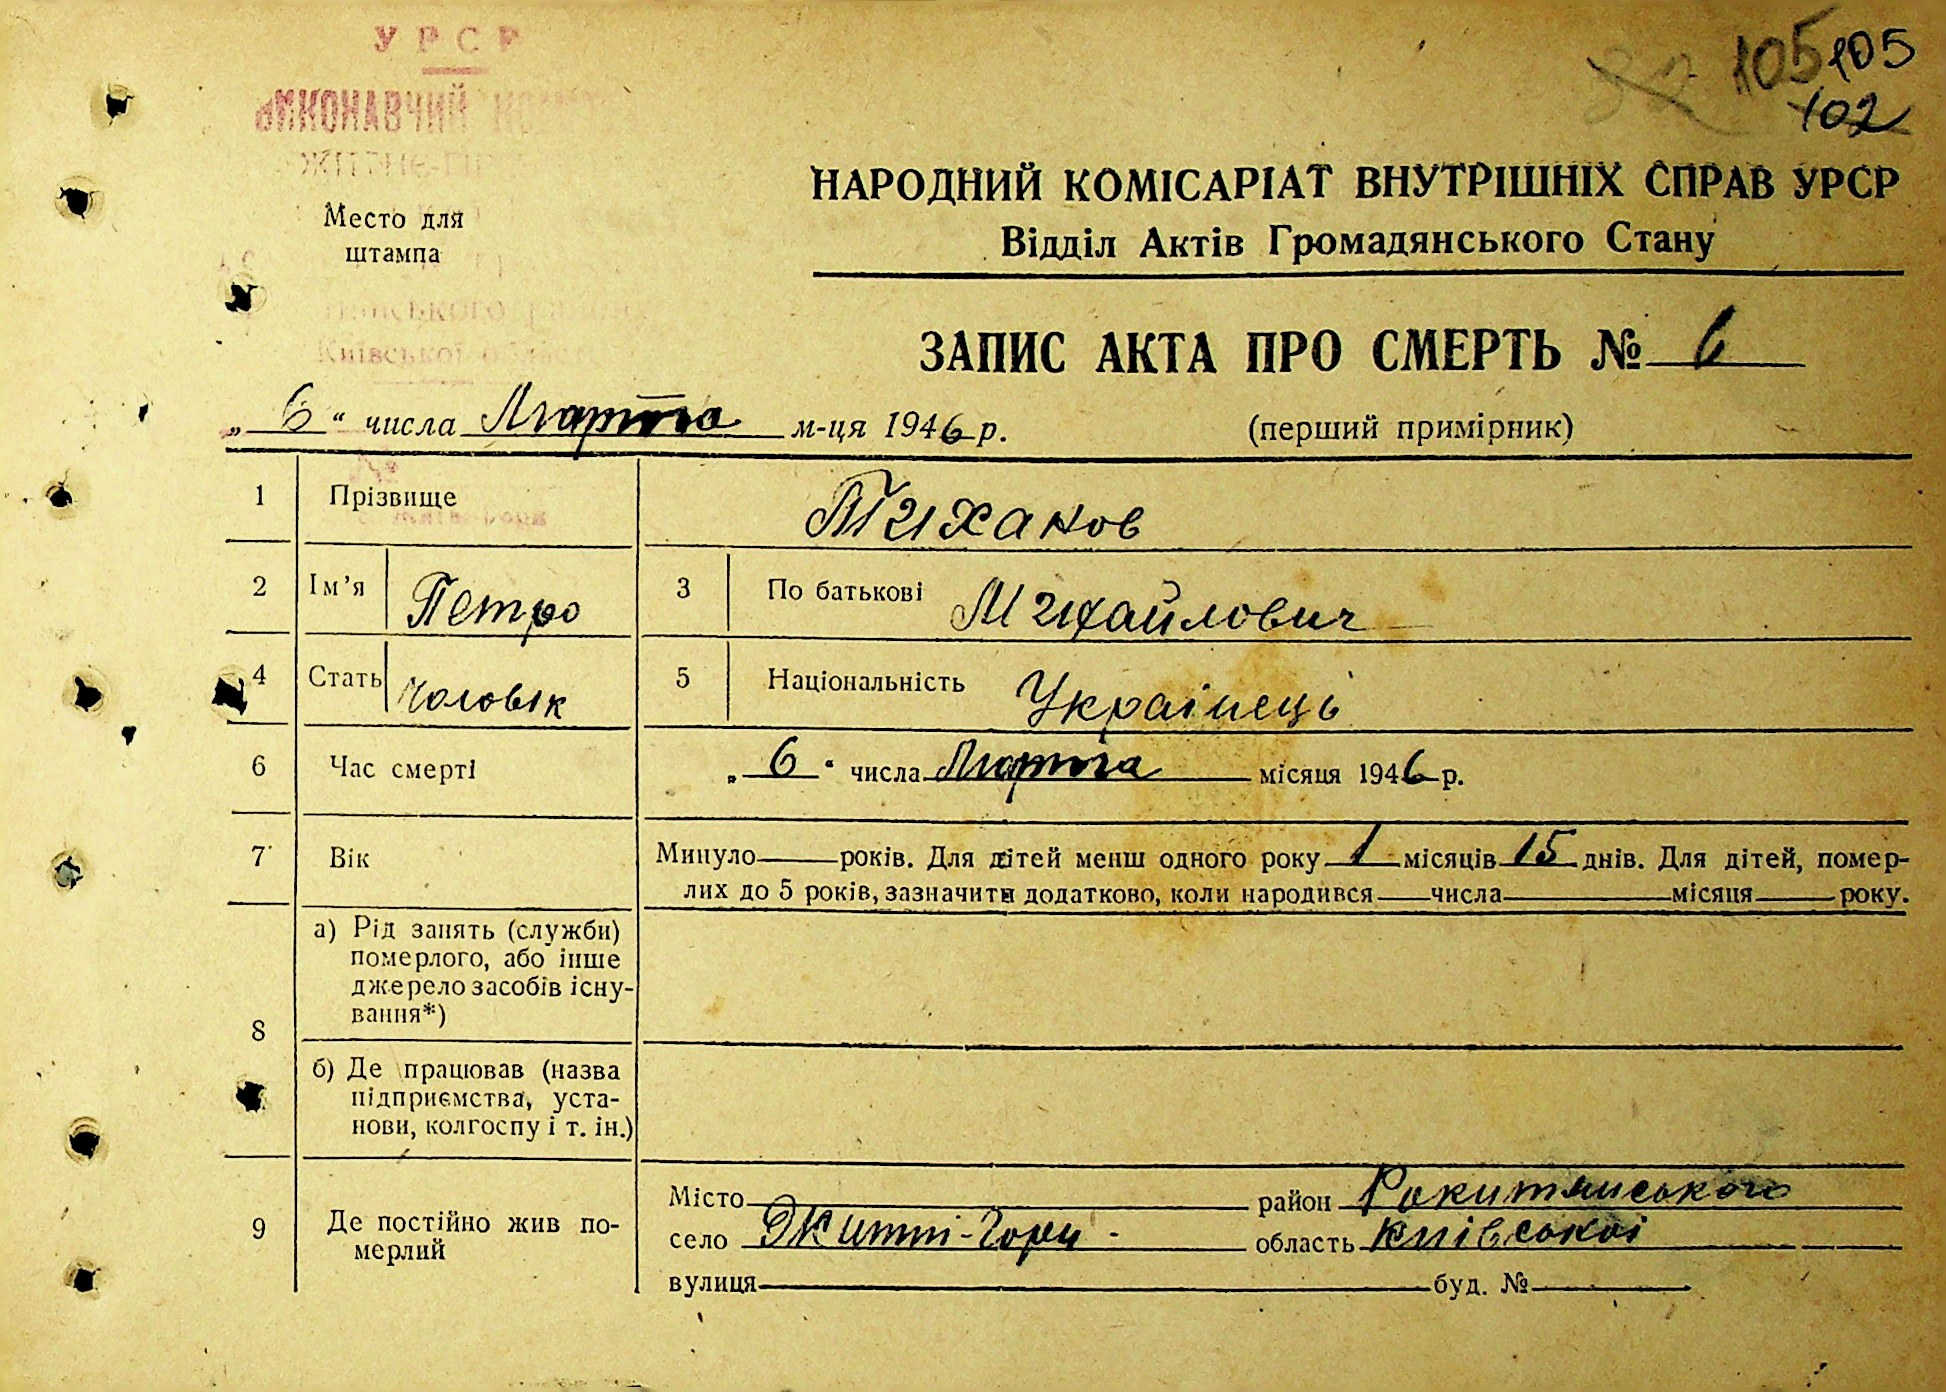 УРСР
105 105
102
Место для
штампа
НАРОДНИЙ КОМІСАРІАТ ВНУТРІШНІХ СПРАВ УРСР
Відділ Актів Громадянського Стану
Київської
ЗАПИС АКТА ПРО СМЕРТЬ № 6
„ 6 “ числа Марта м-ця 1946 р. (перший примірник)
1 Прізвище Тиханов
2 Ім'я Петро 3 По батькові Михайлович
4 Стать чоловік 5 Національність Українець
6 Час смерті „ 6 “ числа Марта місяця 1946 р.
7 Вік Минуло років. Для дітей менш одного року 1 місяців 15 днів. Для дітей, помер-
лих до 5 років, зазначити додатково, коли народився числа місяця року.
8 а) Рід занять (служби)
померлого, або інше
джерело засобів існу-
вання*)
б) Де працював (назва
підприємства, уста-
нови, колгоспу і т. ін.)
9 Де постійно жив по-
мерлий
Місто район Рокитянського
село Житні-Гори область Київської
вулиця буд. №